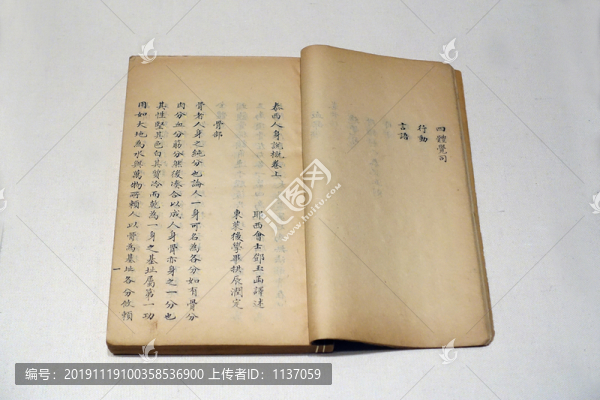 四體覺司
行動
言語
泰西人身說概卷上
耶西會士鄧玉函譯述
東萊後學畢拱辰潤定
骨部
骨者人身之純分也論人一身可名為各分如有骨分
肉分血分筋分然後湊合以成人身骨亦身之一分也
其性堅其色白其質冷而乾為一身之基址屬第一功
用如大地為水與萬物所賴人以骨為基址各分攸賴
一
汇图网
www.huitu.com
编号:20191119100358536900 上传者ID:1137059